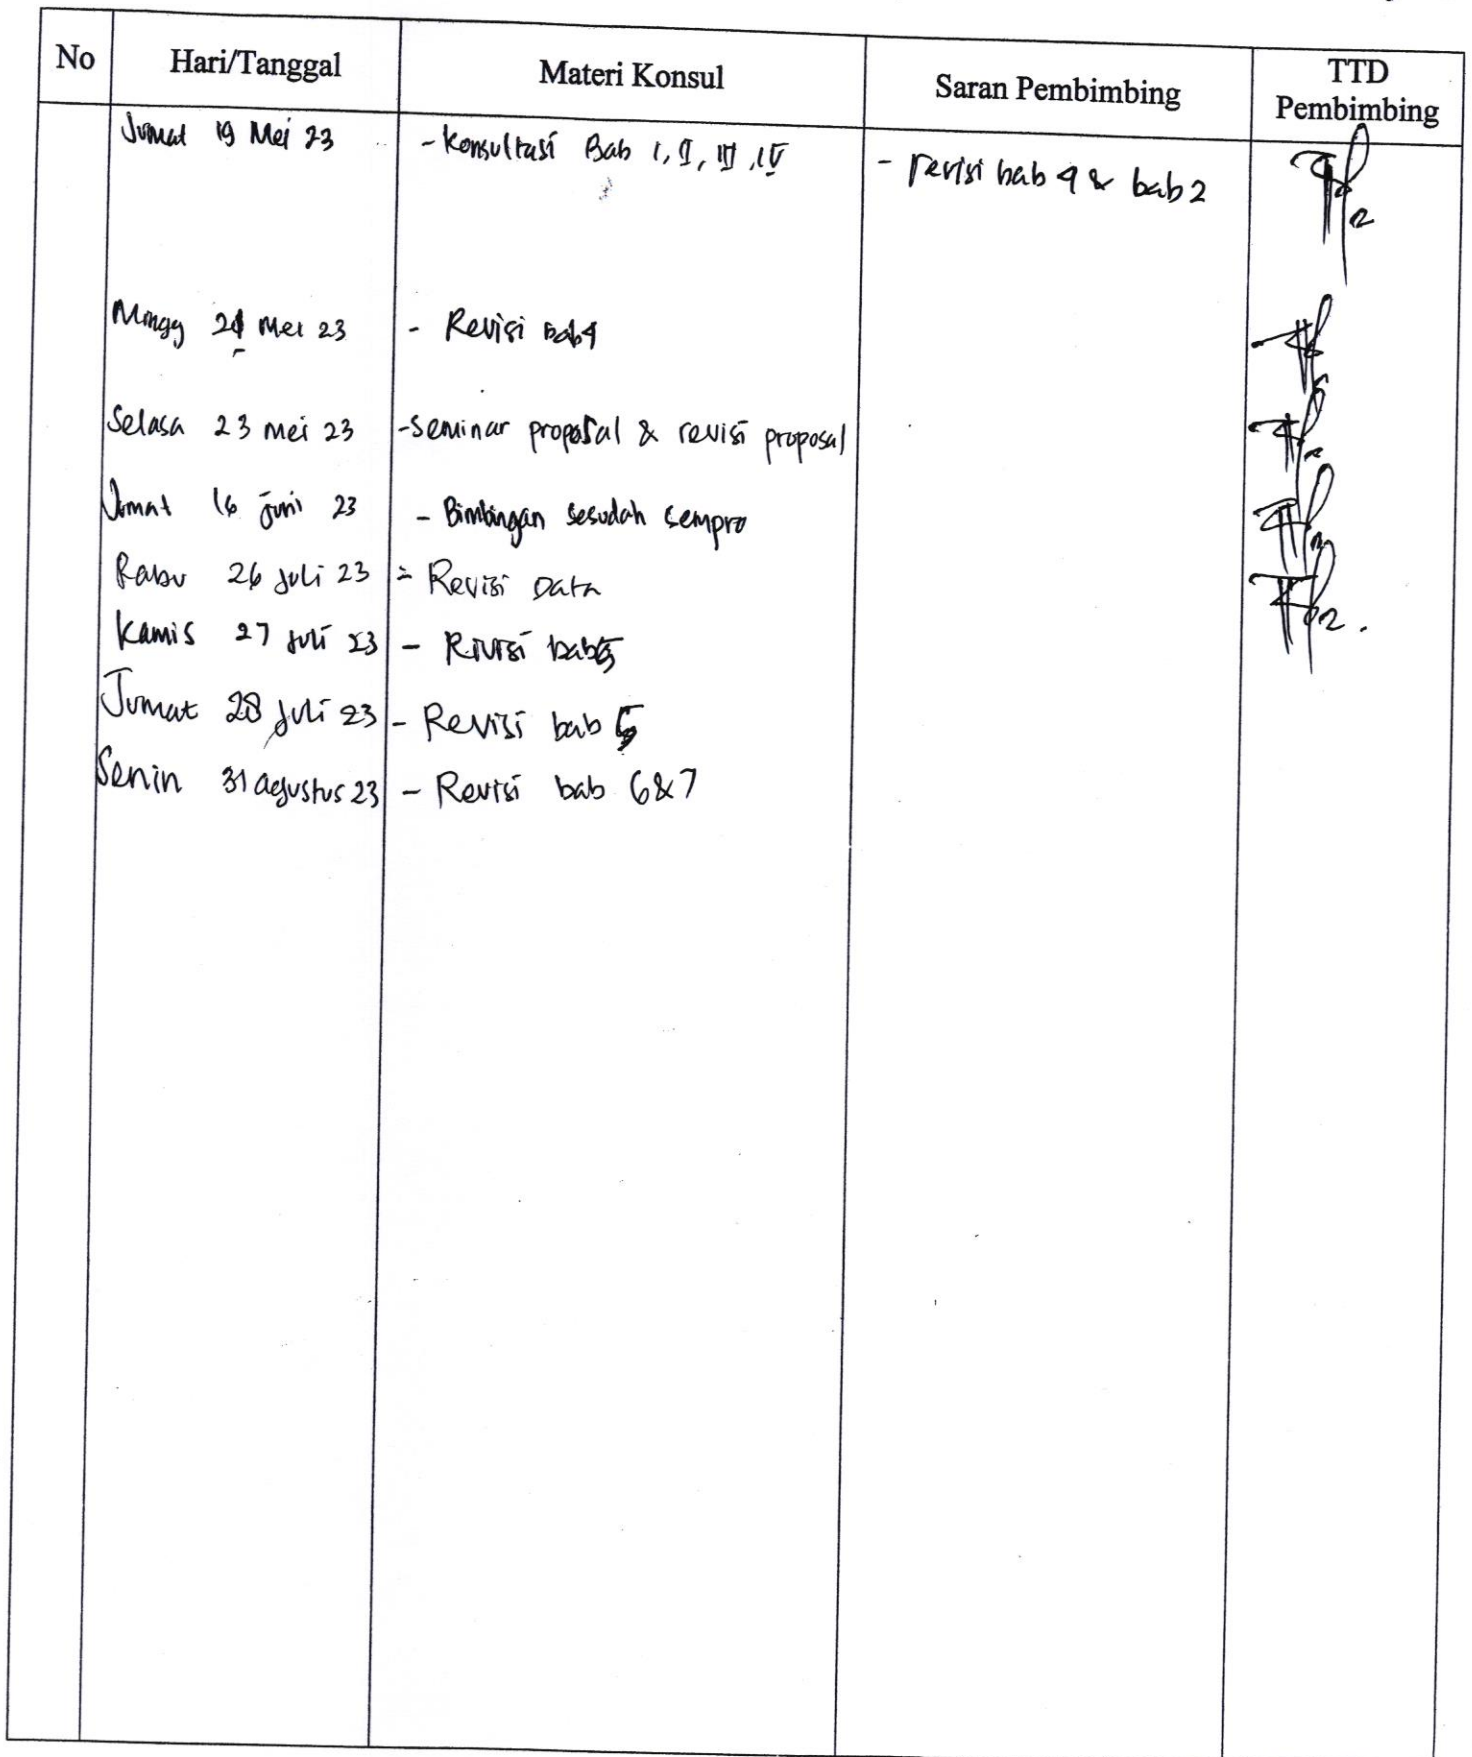 No Hari/Tanggal Materi Konsul Saran Pembimbing TTD Pembimbing
Jumat 19 Mei 23 - Konsultasi Bab I, II, III, IV - revisi bab 4 & bab 2
Minggu 21 Mei 23 - Revisi Bab 4
Selasa 23 mei 23 - Seminar proposal & revisi proposal
Jumat 16 juni 23 - Bimbingan sesudah sempro
Rabu 26 juli 23 - Revisi Data
Kamis 27 juli 23 - Revisi bab 5
Jumat 28 juli 23 - Revisi bab 5
Senin 31 agustus 23 - Revisi bab 6 & 7